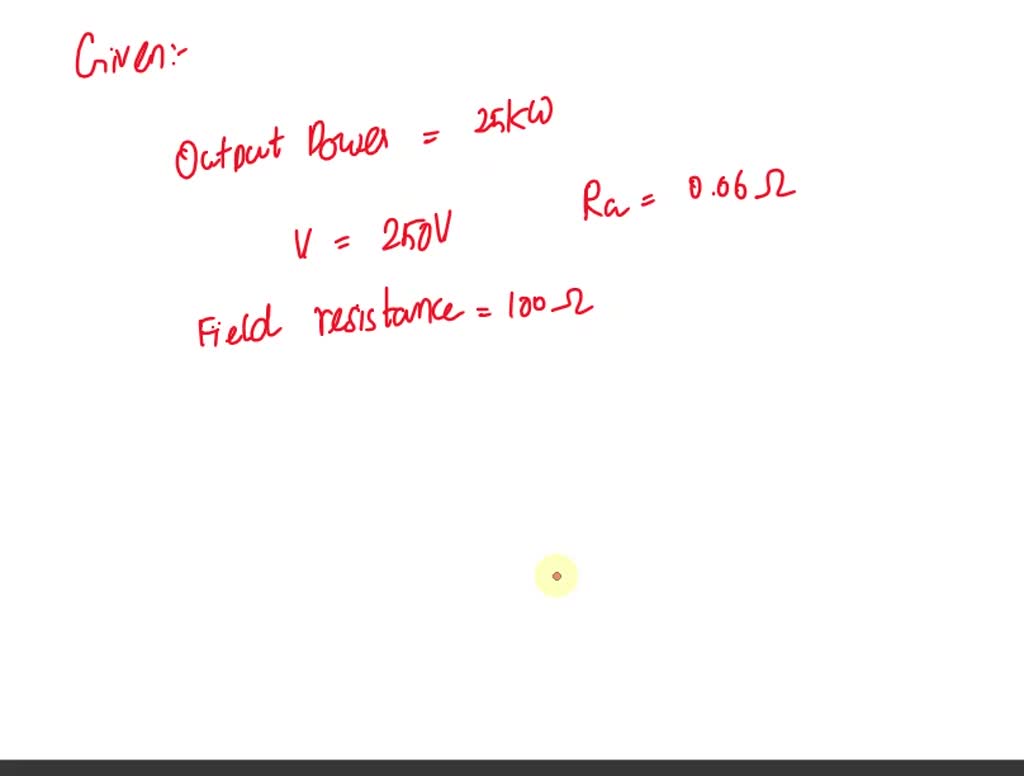 Given:-
Output Power = 25kW
V = 250V
Ra = 0.06 Ω
Field resistance = 100 Ω